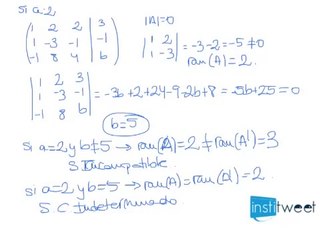 Si a=2
|A|=0
( 1 2 2 | 3
1 -3 -1 | -1
-1 8 4 | b )
| 1 2
1 -3 | = -3-2=-5≠0
ran(A)=2.
| 1 2 3
1 -3 -1
-1 8 b | = -3b+2+24-9-2b+8 = -5b+25=0
b=5
Si a=2 y b≠5 → ran(A)=2≠ran(A')=3
S. Incompatible.
Si a=2 y b=5 → ran(A)=ran(A')=2.
S C Indeterminado
institweet